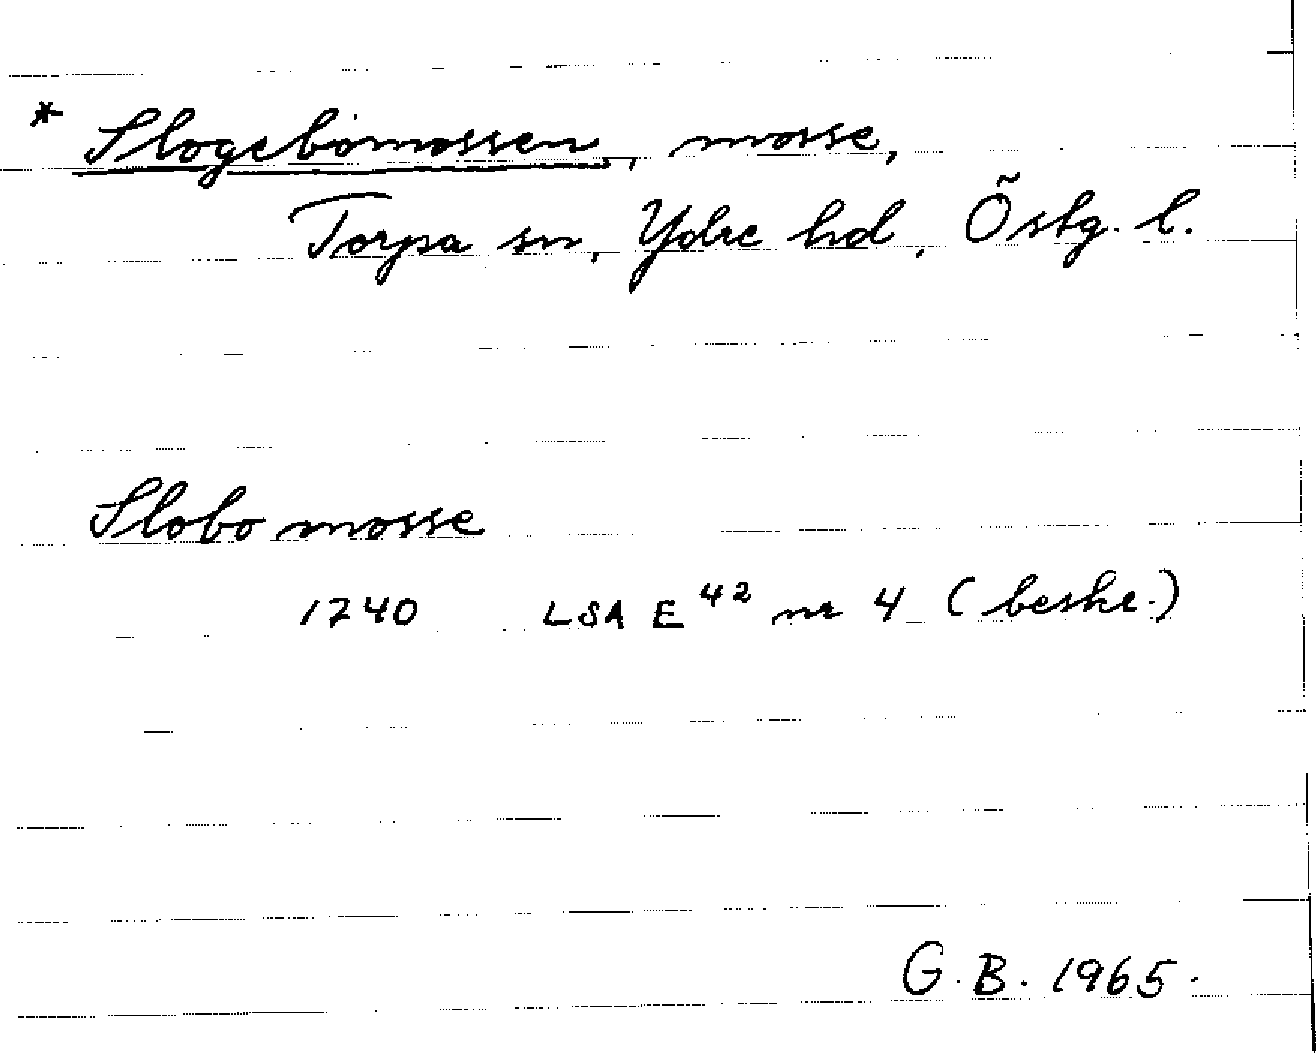 * Slogebomossen, mosse,
Torpa sn, Ydre hd, Östg. l.
Slobo mosse
1740 LSA E 42 nr 4 (beskr.)
G. B. 1965.